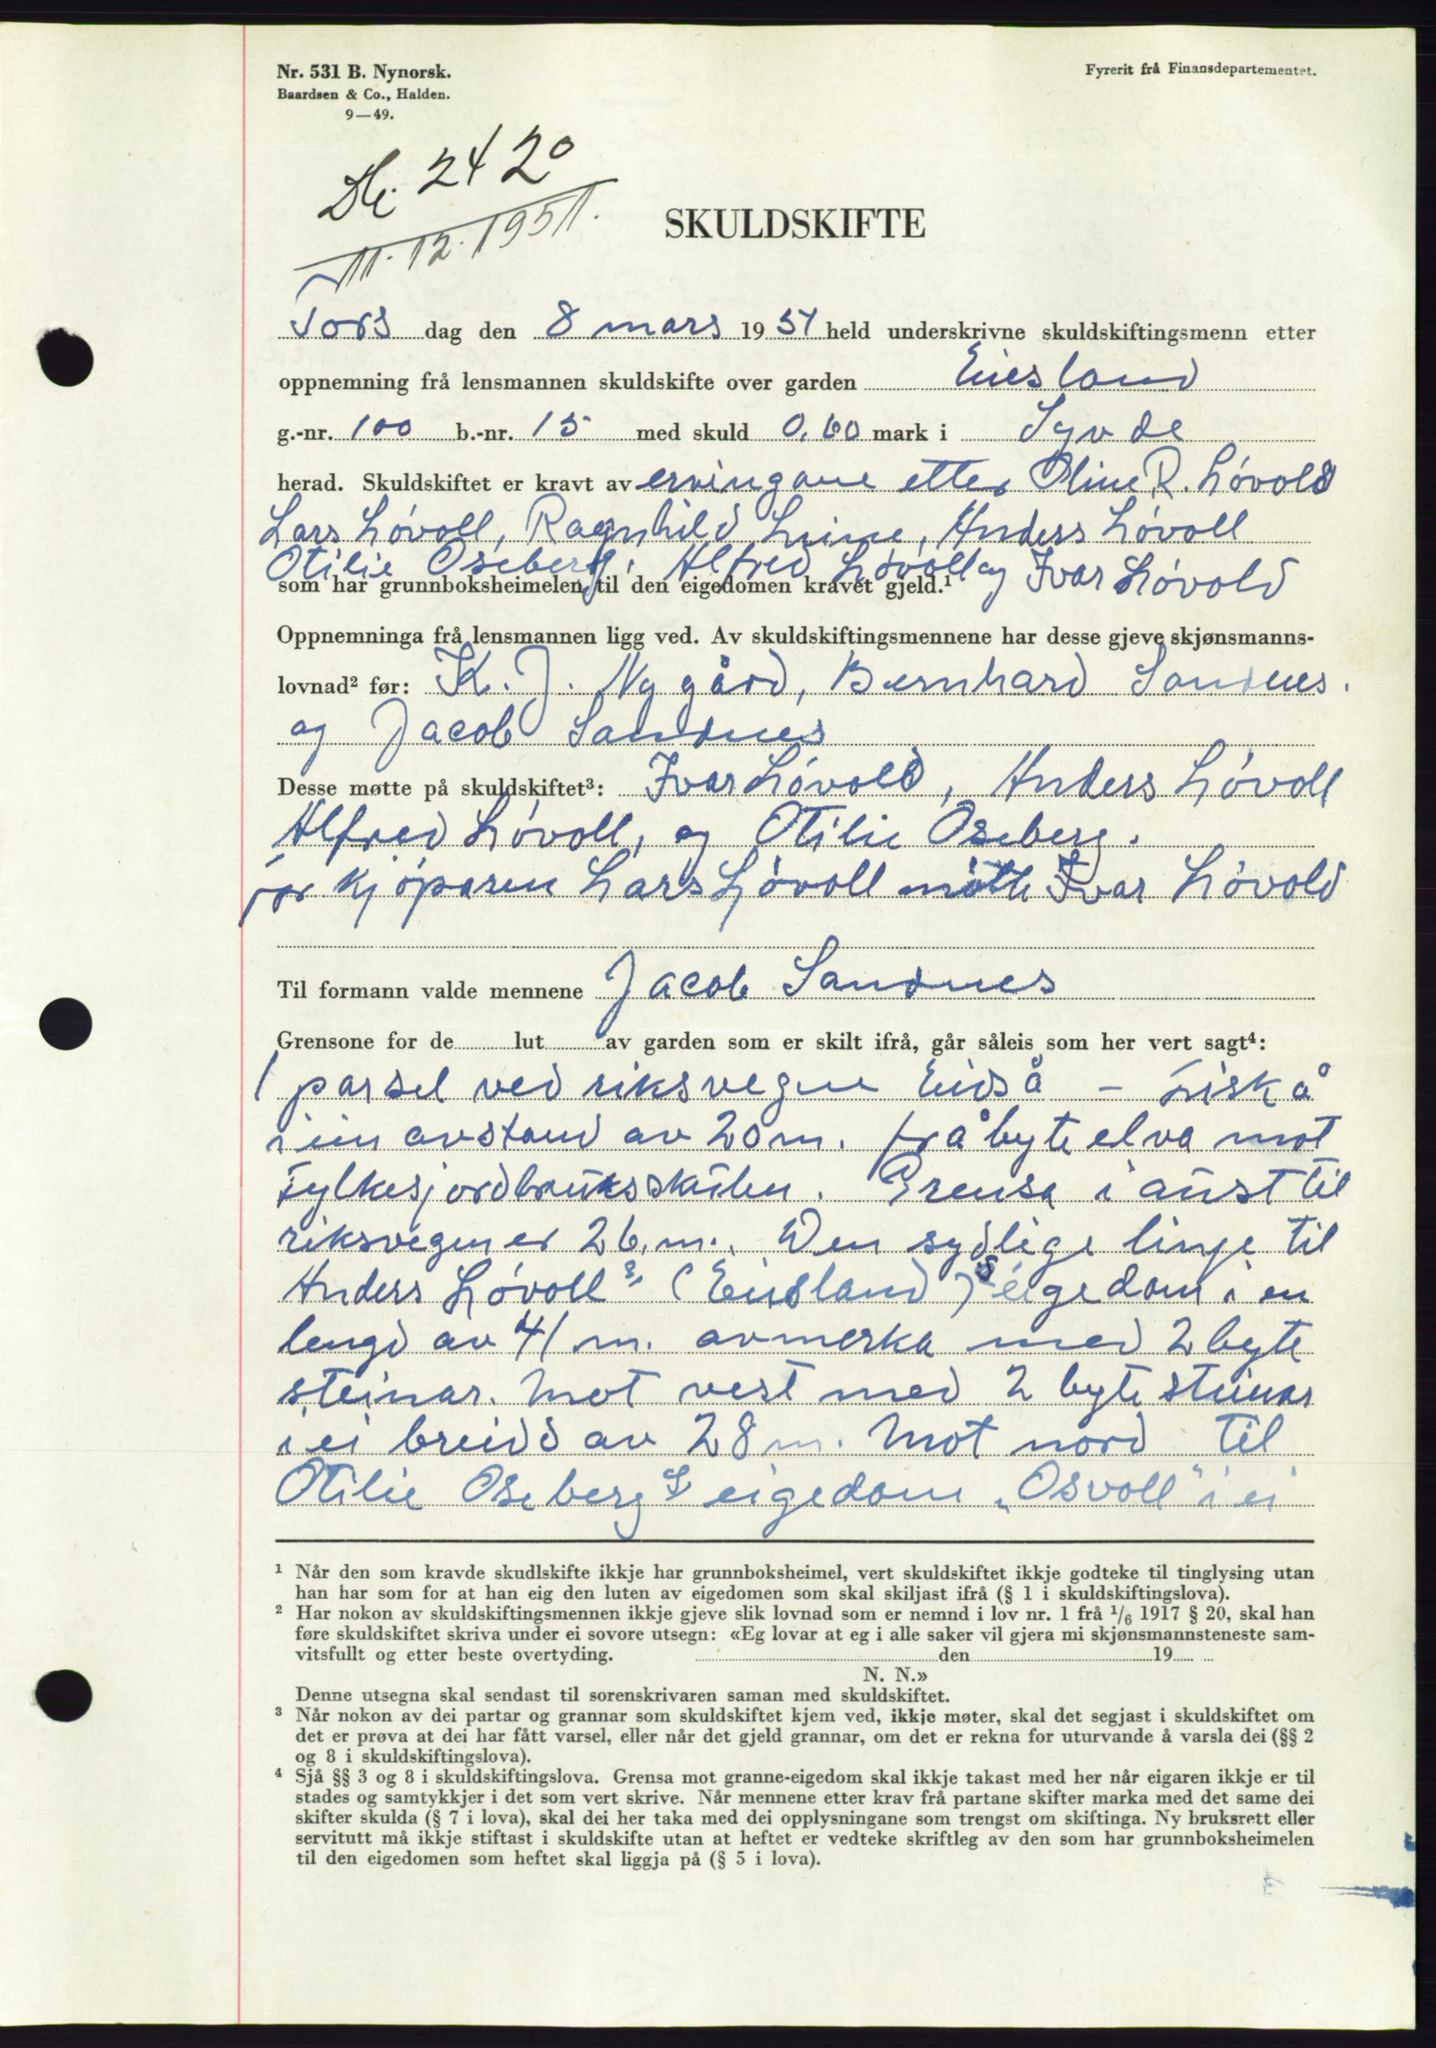 Nr. 531 B. Nynorsk.
Baardsen & Co., Halden.
9—49.
Fyrerit frå Finansdepartementet.
2420
11.12.1951.
SKULDSKIFTE
Tors dag den 8 mars 1951 held underskrivne skuldskiftingsmenn etter
oppnemning frå lensmannen skuldskifte over garden Eiesland
g.-nr. 100 b.-nr. 15 med skuld 0,60 mark i Syvde
herad. Skuldskiftet er kravt av ervingane etter Oline R. Løvold
Lars Løvoll, Ragnhild Leine, Anders Løvoll
Otilie Oseberg, Alfred Løvoll og Ivar Løvold
som har grunnboksheimelen til den eigedomen kravet gjeld.¹
Oppnemninga frå lensmannen ligg ved. Av skuldskiftingsmennene har desse gjeve skjønsmanns-
lovnad² før: K. J. Nygård, Bernhard Sandnes.
og Jacob Sandnes
Desse møtte på skuldskiftet³: Ivar Løvold, Anders Løvoll
Alfred Løvoll, og Otilie Oseberg.
for kjøparen Lars Løvoll møtte Ivar Løvold
Til formann valde mennene Jacob Sandnes
Grensone for de lut av garden som er skilt ifrå, går såleis som her vert sagt⁴:
1 parsel ved riksvegen Eidså – Fiskå
i ein avstand av 20 m. frå byteelva mot
Fylkesjordbruksskulen. Grensa i aust til
riksvegen er 26 m. Den sydlige linje til
Anders Løvoll's (Eiesland)s eigedom i en
lengd av 41 m. avmerka med 2 byte
steinar. Mot vest med 2 byte steinar
i ei breidd av 28 m. Mot nord til
Otilie Oseberg's eigedom „Osvoll" i ei
¹ Når den som kravde skudlskifte ikkje har grunnboksheimel, vert skuldskiftet ikkje godteke til tinglysing utan
han har som for at han eig den luten av eigedomen som skal skiljast ifrå (§ 1 i skuldskiftingslova).
² Har nokon av skuldskiftingsmennen ikkje gjeve slik lovnad som er nemnd i lov nr. 1 frå ¹/₆ 1917 § 20, skal han
føre skuldskiftet skriva under ei sovore utsegn: «Eg lovar at eg i alle saker vil gjera mi skjønsmannsteneste sam-
vitsfullt og etter beste overtyding. den 19
N. N.»
Denne utsegna skal sendast til sorenskrivaren saman med skuldskiftet.
³ Når nokon av dei partar og grannar som skuldskiftet kjem ved, ikkje møter, skal det segjast i skuldskiftet om
det er prøva at dei har fått varsel, eller når det gjeld grannar, om det er rekna for uturvande å varsla dei (§§ 2
og 8 i skuldskiftingslova).
⁴ Sjå §§ 3 og 8 i skuldskiftingslova. Grensa mot granne-eigedom skal ikkje takast med her når eigaren ikkje er til
stades og samtykkjer i det som vert skrive. Når mennene etter krav frå partane skifter marka med det same dei
skifter skulda (§ 7 i lova), skal dei her taka med dei opplysningane som trengst om skiftinga. Ny bruksrett eller
servitutt må ikkje stiftast i skuldskifte utan at heftet er vedteke skriftleg av den som har grunnboksheimelen
til den eigedomen som heftet skal liggja på (§ 5 i lova).